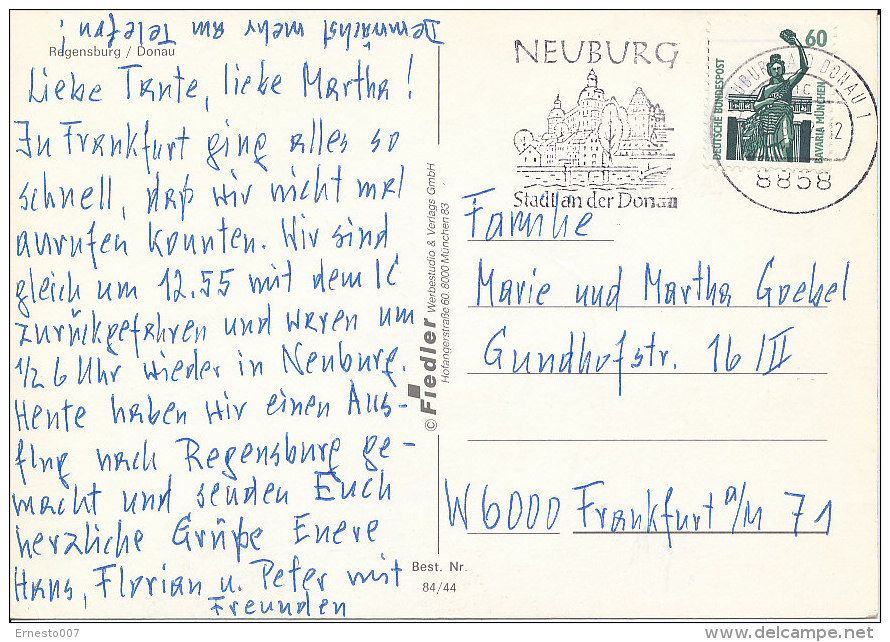 Demnächst mehr am Telefon!
Regensburg / Donau
Liebe Tante, liebe Martha!
In Frankfurt ging alles so
schnell, daß wir nicht mal
anrufen konnten. Wir sind
gleich um 12.55 mit dem IC
zurückgefahren und waren um
1/2 6 Uhr wieder in Neuburg.
Heute haben wir einen Aus-
flug nach Regensburg ge-
macht und senden Euch
herzliche Grüße Euere
Hans, Florian u. Peter mit
Freunden
© Fiedler Werbestudio & Verlags GmbH
Hofangerstraße 60, 8000 München 83
Best. Nr.
84/44
NEUBURG
Stadt an der Donau
60
DEUTSCHE BUNDESPOST
BAVARIA MÜNCHEN
DONAU 1
8858
Familie
Marie und Martha Goebel
Gundhofstr. 16/II
W 6000 Frankfurt a/M 71
Ernesto007
www.delcampe.net